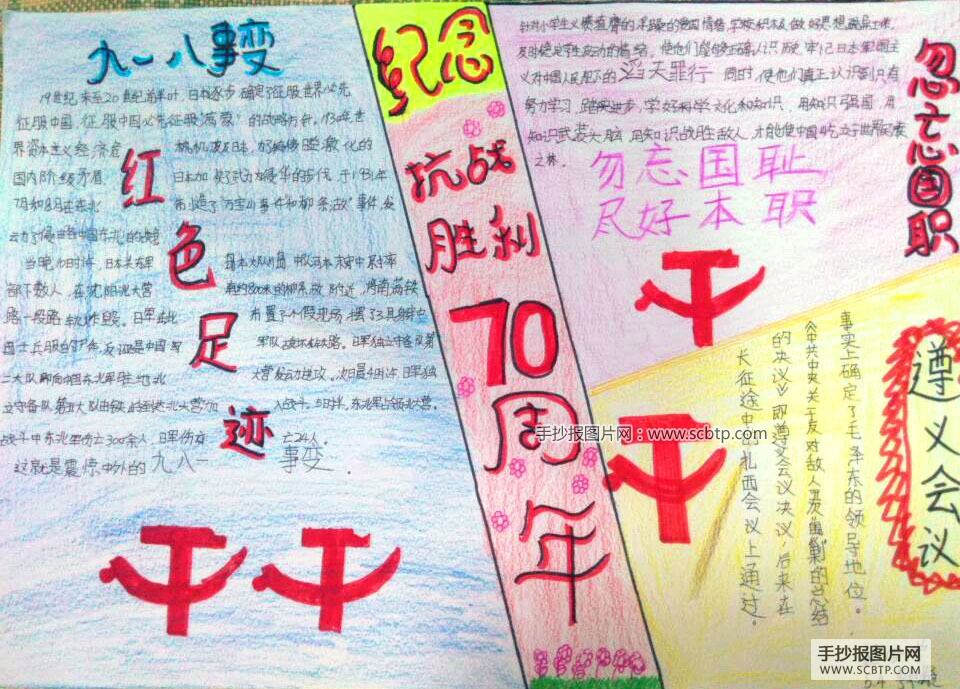 九一八事变
19世纪末至20世纪前半叶，日本逐步确定了征服世界必先
征服中国，征服中国必先征服"满蒙"的战略方针。1930年世
界资本主义经济危机波及日本，激化的
国内阶级矛盾，日本加快了武力侵华的步伐，于1931年
7月和8月在东北制造了"万宝山事件和柳条沟"事件，发
动了侵略中国东北的
当晚10时许，日本关东军
部下数人，在沈阳北大营约800米的柳条湖附近，将南满铁
路一段路轨炸毁。日军在此布置了一个假现场，摆了3具身穿
西士兵服的尸体，反诬是中国军队破坏铁路。日军独立守备队第
二大队即向中国东北军驻地北大营发动进攻。次日晨4时许，日军独
立守备队第五大队由铁岭到达北大营加入战斗。5时半，东北军
占领北大营。
战斗中东北军伤亡300余人，日军伤亡24人。
这就是震惊中外的九一八事变.
红色足迹
纪念
抗战
胜利
70
周
年
学校积极做好思想疏导工作，
使他们能够正确认识历史，牢记日本军国主
义对中国人民犯下的滔天罪行 同时，使他们真正认识到只有
努力学习，踏实进步，学好科学文化和知识，用知识强国，用
知识武装大脑，用知识战胜敌人，才能使中国屹立于世界
之林.
勿忘国耻
尽好本职
勿忘国职
遵义会议
事实上确定了毛泽东的领导地位.
的决议》即遵义会议决议，后来在
长征途中的扎西会议上通过.
手抄报图片网：www.scbtp.com
手抄报图片网
WWW.SCBTP.COM